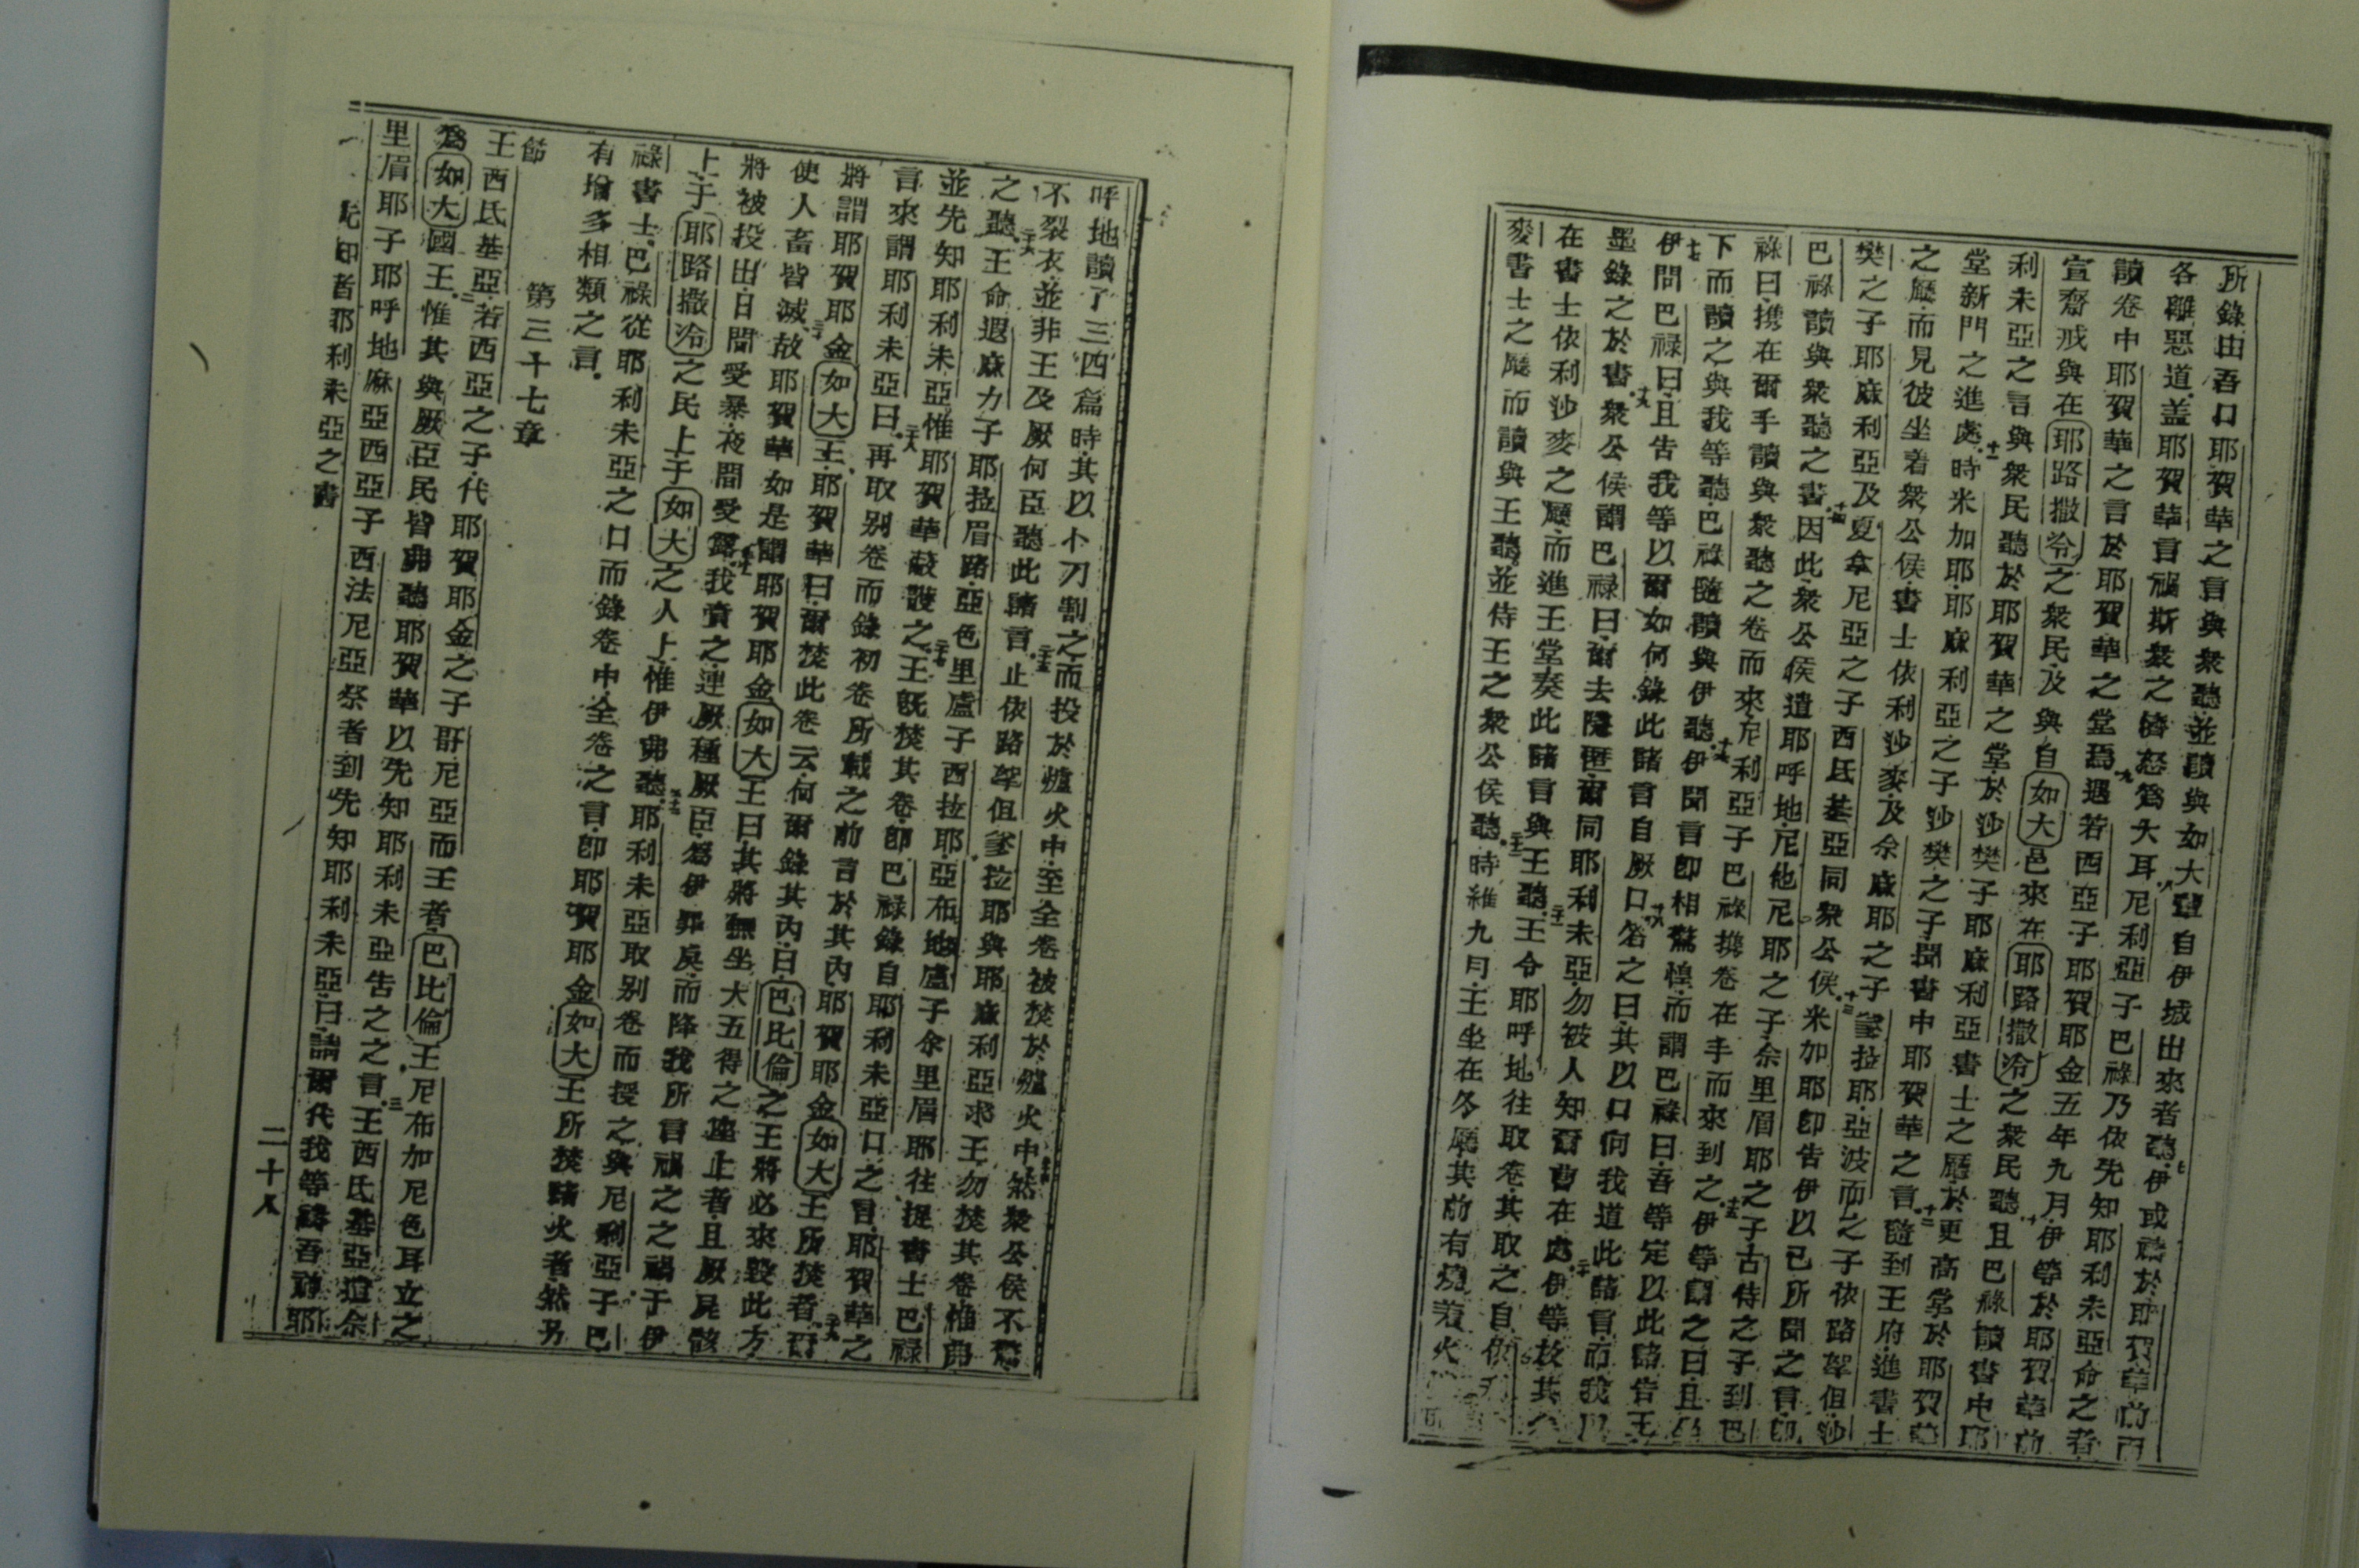 所錄由吾口耶賀華之言與衆聽並讀與如大㒰自伊城出來者聽七伊或禱於耶賀華前而
各離惡道蓋耶賀華言禍斯衆之憤怒爲大耳八尼利亞子巴祿乃依先知耶利未亞命之者
讀卷中耶賀華之言於耶賀華之堂焉九遇若西亞子耶賀耶金五年九月伊等於耶賀華前
宣齋戒與在耶路撒冷之衆民及與自如大邑來在耶路撒冷之衆民聽十且巴祿讀書中耶
利未亞之言與衆民聽於耶賀華之堂於沙樊子耶麻利亞書士之廳於更高堂於耶賀華
堂新門之進處十一時米加耶耶麻利亞之子沙樊之子聞書中耶賀華之言十二隨到王府進書士
之廳而見彼坐着衆公侯書士依利沙麥及余麻耶之子㙚拉耶亞波而之子依路拏但沙
樊之子耶麻利亞及夏拿尼亞之子西氏基亞同衆公侯十三米加耶卽告伊以己所聞之言卽
巴祿讀與衆聽之書十四因此衆公侯遣耶呼地尼他尼耶之子余里眉耶之子古侍之子到巴
祿曰携在爾手讀與衆聽之卷而來尼利亞子巴祿携卷在手而來到之十五伊等謂之曰且坐
下而讀之與我等聽巴祿隨讀與伊聽十六伊聞言卽相驚惶而謂巴祿曰吾等定以此諸告王
十七伊問巴祿曰且告我等以爾如何錄此諸言自厥口十八答之曰其以口向我道此諸言而我以
墨錄之於書十九衆公侯謂巴祿曰爾去隱匿爾同耶利未亞勿被人知爾曹在處二十伊等放其
在書士依利沙麥之廳而進王堂奏此諸言與王聽二十一王令耶呼地往取卷其取之自依利
麥書士之廳而讀與王聽並侍王之衆公侯聽二十二時維九月王坐在冬廳其前有燒着火
呼地讀了三四篇時其以小刀割之而投於爐火中至全卷被焚於爐火中二十四然衆公侯不驚
不裂衣並非王及厥何臣聽此諸言二十五止依路拏但㙚拉耶與耶麻利亞求王勿焚其卷惟弗
之聽二十六王命遐麻力子耶拉眉路亞色里盧子西拉耶亞布地盧子余里眉耶往捉書士巴祿
並先知耶利未亞惟耶賀華蔽護之二十七王旣焚其卷卽巴祿錄自耶利未亞口之言耶賀華之
言來謂耶利未亞曰二十八再取別卷而錄初卷所載之前言於其內耶賀耶金如大王所焚者二十九爾
將謂耶賀耶金如大王耶賀華曰爾焚此卷云何爾錄其內曰巴比倫之王將必來毀此方
使人畜皆滅三十故耶賀華如是謂耶賀耶金如大王曰其將無坐大五得之座止者且厥屍骸
將被投出日間受暴夜間受露三十一我責之連厥種厥臣爲伊罪戾而降我所言禍之之禍于伊
上于耶路撒冷之民上于如大之人上惟伊弗聽三十二耶利未亞取別卷而授之與尼利亞子巴
祿書士巴祿從耶利未亞之口而錄卷中全卷之言卽耶賀耶金如大王所焚諸火者然另
有增多相類之言
第三十七章
節
王西氏基亞若西亞之子代耶賀耶金之子哥尼亞而王者巴比倫王尼布加尼色耳立之
爲如大國王二惟其與厥臣民皆弗聽耶賀華以先知耶利未亞告之之言三王西氏基亞遣余
里眉耶子耶呼地麻亞西亞子西法尼亞祭者到先知耶利未亞曰請爾代我等禱吾神耶
先知者耶利未亞之書
二十八